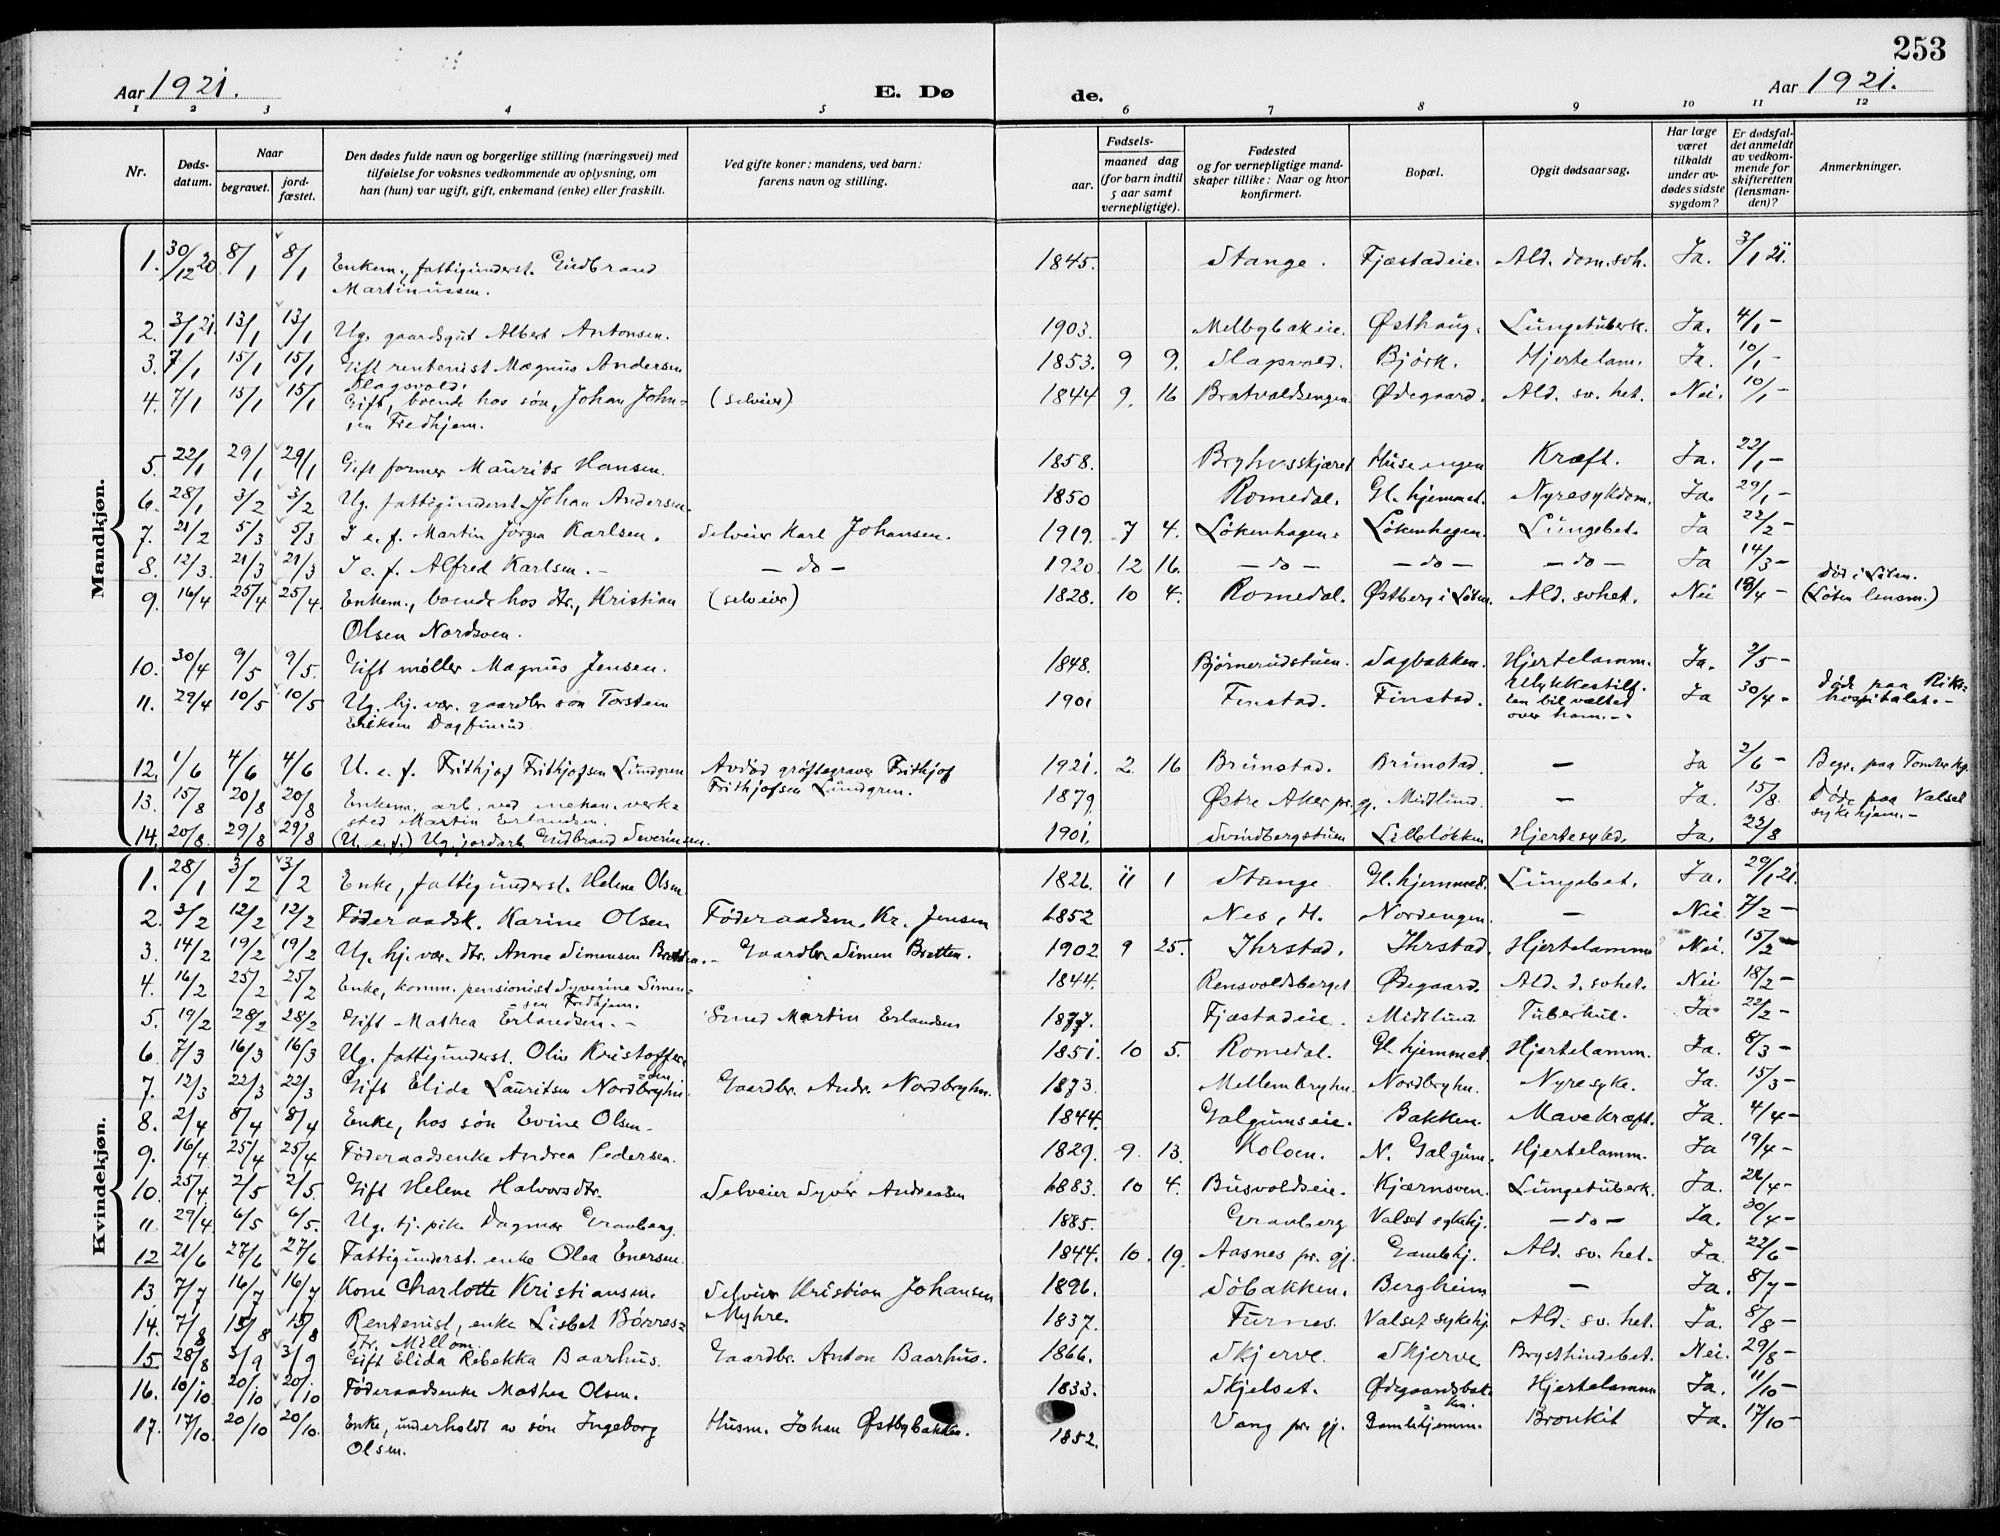 253
Aar 1921. E. Dø de. Aar 1921.
1 2 3 4 5 6 7 8 9 10 11 12
Nr. Døds-datum. Naar begravet. jord-fæstet. Den dødes fulde navn og borgerlige stilling (næringsvei) med tilføielse for voksnes vedkommende av oplysning, om han (hun) var ugift, gift, enkemand (enke) eller fraskilt. Ved gifte koner: mandens, ved barn: farens navn og stilling. Fødsels- aar. maaned dag (for barn indtil 5 aar samt vernepligtige). Fødested og for vernepligtige mand-skaper tillike: Naar og hvor konfirmert. Bopæl. Opgit dødsaarsag. Har læge været tilkaldt under av-dødes sidste sygdom? Er dødsfal-det anmeldt av vedkom-mende for skifteretten (lensman-den)? Anmerkninger.
Mandkjøn.
1. 30/12 20 8/1 8/1 Enkem., fattigunderst. Gudbrand Martinussen. 1845. Stange. Fjæstadeie. Ald. dom. svh. Ja. 3/1 21.
2. 3/1 21. 13/1 13/1 Ug. gaardsgut Albert Antonsen. 1903. Melbybakeie. Østhaug. Lungetuberk. Ja. 4/1 -
3. 7/1 15/1 15/1 Gift rentenist Magnus Andersen Slagsvold. 1853. 9 9. Slagsvold. Bjørk. Hjertelam. Ja. 10/1 -
4. 7/1 15/1 15/1 Gift, boende hos søn, Johan John-sen Fredhjem. (selveier) 1844 9. 16 Bratvoldsengen Ødegaard. Ald. sv. het. Nei. 10/1 -
5. 22/1 29/1 29/1 Gift former Maurits Hansen. 1858. Bryhusskjæret Husengen Kræft. Ja. 22/1 -
6. 28/1 3/2 3/2 Ug. fattigunderst. Johan Andersen. 1850 Romedal. Gl. hjemmet. Nyresykdom. Ja. 29/1 -
7. 21/2 5/3 5/3 I e. f. Martin Jørgen Karlsen. Selveier Karl Johansen. 1919. 7 4. Løkenhagen. Løkenhagen. Lungebet. Ja 22/2 -
8. 12/3. 21/3 21/3 I e. f. Alfred Karlsen. - - do - 1920. 12 16. - do - - do - - do - Ja 14/3 -
9. 16/4 25/4 25/4. Enkem., boende hos dtr., Kristian Olsen Nordsven. (selveier) 1828. 10 4. Romedal. Østberg i Løten. Ald. svhet. Nei 18/4 - død i Løten. (Løten lensm.)
10. 30/4 9/5 9/5. Gift møller Magnus Jensen. 1848. Bjørnerudstuen. Sagbakken. Hjertelamm. Ja. 2/5 -
11. 29/4 10/5 10/5 Ug. hj. vær. gaardbr. søn Torstein Eriksen Dagfinrud. 1901 Finstad. Finstad. Ulykkestilf. (en bil væltet over ham. - Ja 30/4 - Døde paa Riks-hospitalet. -
12. 1/6 4/6 4/6 U. e. f. Frithjof Frithjofsen Lundgren Avdød grøftegraver Frithjof Frithjofsen Lundgren. 1921. 2. 16 Brunstad. Brunstad. - Ja 2/6 - Begr. paa Tomter kg.
13. 15/8 20/8 20/8 Enkem. arb. ved mekan. verk-sted Martin Erlandsen. 1879 Østre Aker pr. gj. Midtlund. - Ja. 15/8. Døde paa Valset sykehjem. -
14. 20/8. 29/8 29/8 (U. e. f.) Ug. jordarb. Gudbrand Severinsen. 1901. Svindbergstuen Lilleløkken Hjertesykd. Ja. 22/8
Kvindekjøn.
1. 28/1 3/2 3/2 Enke, fattigunderst. Helene Olsen 1826. 11 1 Stange Gl. hjemmet. Lungebet. Ja. 29/1 21.
2. 3/2 12/2 12/2 Føderaadsk. Karine Olsen Føderaadsm. Kr. Jensen 1852 Nes, H. Nordengen. - Nei 7/2 -
3. 14/2 19/2 19/2 Ug. hj. vær. dtr. Anne Simensen Bratten. - Gaardbr. Simen Bratten. 1902 9 25. Ihrstad. Ihrstad. Hjertelamme Nei. 15/2 -
4. 16/2 25/2 25/2 Enke, komm. pensionist Syverine Simen-sen Fredhjem. 1844. Rensvoldsberget Ødegaard. Ald. d. svhet. Nei 18/2 -
5. 19/2 28/2 28/2 Gift Mathea Erlandsen. - Smed Martin Erlandsen 1877. Fjæstadeie. Midtlund Tuberkul. Ja 22/2 -
6. 7/3 16/3 16/3 Ug. fattigunderst. Oliv Kristoffer-sen 1851. 10 5. Romedal. Gl. hjemmet. Hjertelamm. Ja. 8/3 -
7. 12/3 22/3 22/3 Gift Elida Lauritsen Nordbryhn. Gaardbr. Andr. Nordbryhn. 1873. Mellembryhn. Nordbryhn. Nyresyke. Ja. 15/3 -
8. 2/4 8/4 8/4 Enke, hos søn Evine Olsen. 1844. Galgumseie. Bakken. Mavekræft. Ja. 4/4 -
9. 16/4. 25/4 25/4 Føderaadsenke Andrea Pedersen. 1829. 9. 13. Koloen. N. Galgum. Hjertelamm. Ja 19/4 -
10. 25/4. 2/5 2/5. Gift Helene Halvorsdtr. Selveier Syver Andreasen 1883. 10 4. Busvoldseie. Kjærnsven. Lungetuberk. Ja. 26/4 -
11. 29/4. 6/5 6/5. Ug. tj. pike Dagmar Gravberg. 1885. Gravberg Valset sykehj. - do - Ja. 30/4 -
12 21/6 27/6 27/6 Fattigunderst. enke Olea Enersen. 1844. 10. 19. Aasnes pr. gj. Gamlehj. Ald. sv. het. Ja. 22/6 -
13 7/7 16/7 16/7 Kone Charlotte Kristiansen. Selveier Kristian Johansen Myhre. 1896. Søbakken. Bergheim - Ja. 8/7 -
14. 7/8 15/8 15/8 Rentenist, enke Lisbet Børres-dtr. Millom. 1837. Furnes. Valset sykehj. Ald. sv. het. Ja. 8/8 -
15 28/8 3/9 3/9 Gift Elida Rebekka Baarhus. Gaardbr. Anton Baarhus. 1866. Skjerve. Skjerve. Brysthindebet. Nei. 29/8 -
16. 10/10 20/10 20/10 Føderaadsenke Mathea Olsen. 1833. Skjelset. Ødegaardsbak-ken. Hjertelamme Ja. 11/10 -
17. 17/10. 20/10 20/10. Enke, underholdt av søn Ingeborg Olsen. Husm. Johan Østbybakken. 1852. Vang pr. gj. Gamlehjemm. Bronkit Ja. 17/10 -